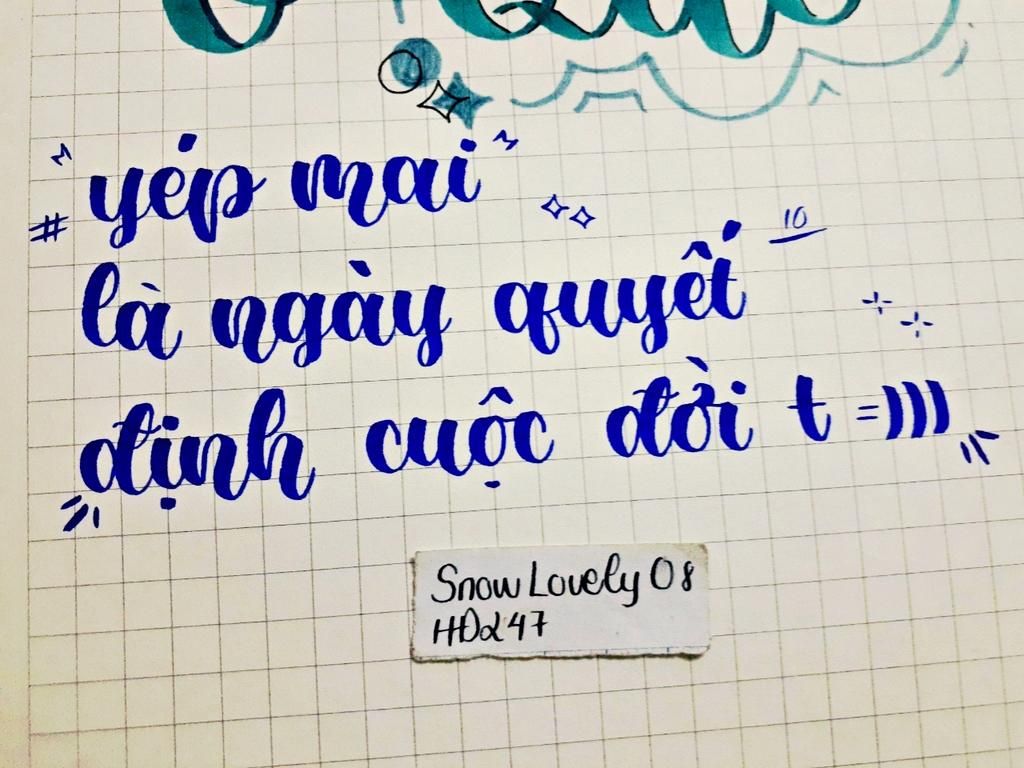 yép mai
#
10
là ngày quyết
định cuộc đời t =)))
Snow Lovely 08
HD247